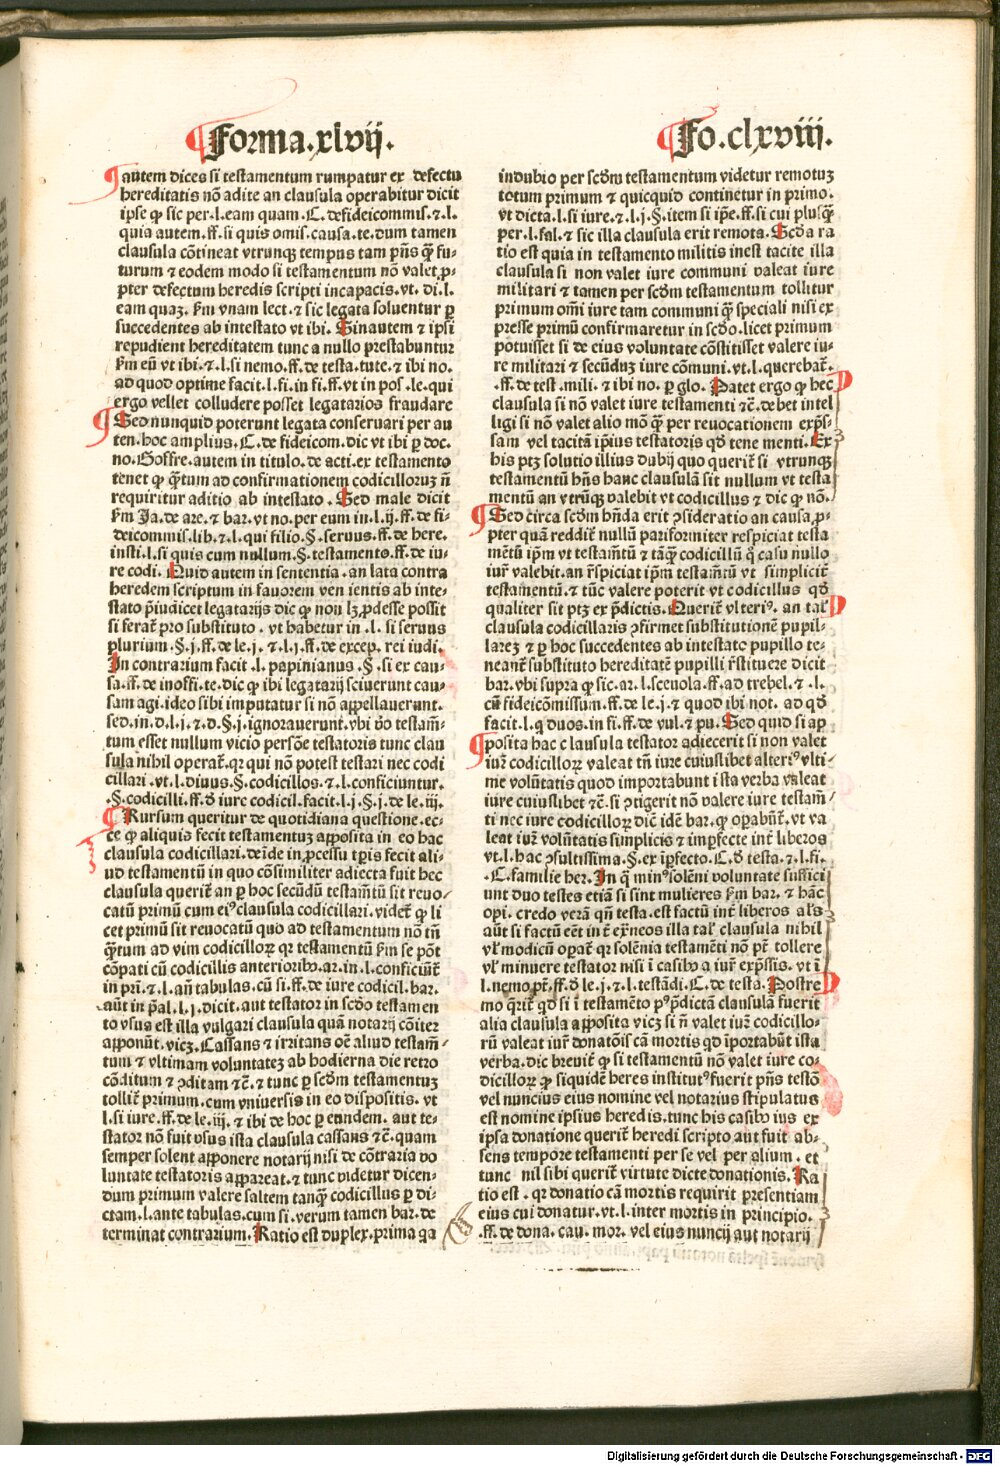 Forma.xlvij.
Fo.clxviii.
autem dices si testamentum rumpatur ex defectu
hereditatis nō adite an clausula operabitur dicit
ipse ꝙ sic per.l.eam quam.C.defideicommis.⁊.l.
quia autem.ff.si quis omis.causa.te.dum tamen
clausula cōtineat vtrunqꝫ tempus tam pn̄s ꝙ̄ fu-
turum ⁊ eodem modo si testamentum nō valet ꝓ-
pter defectum heredis scripti incapacis.vt.di.l.
eam quaꝫ.ẜm vnam lect.⁊ sic legata soluentur ꝑ
succedentes ab intestato vt ibi. Sinautem ⁊ ipsi
repudient hereditatem tunc a nullo prestabuntur
ẜm eū vt ibi.⁊.l.si nemo.ff.de testa.tute.⁊ ibi no.
ad quod optime facit.l.fi.in fi.ff.vt in pos.le.qui
ergo vellet colludere posset legatarios fraudare
Sed nunquid poterunt legata conseruari per au
ten.hoc amplius.C.de fideicom.dic vt ibi ꝑ doc.
no.Goffre.autem in titulo.de acti.ex testamento
tenet ꝙ ꝙ̄tum ad confirmationem codicilloruꝫ n̄
requiritur aditio ab intestato. Sed male dicit
ẜm Ja.de are.⁊ bar.vt no.per eum in.l.ij.ff.de fi-
deicommis.lib.⁊.l.qui filio.§.seruus.ff.de here.
insti.l.si quis cum nullum.§.testamento.ff.de iu-
re codi. Quid autem in sententia.an lata contra
heredem scriptum in fauorem ven ientis ab inte-
stato p̄iudicet legatarijs dic ꝙ non lꝫ ꝓdesse possit
si ferat̄ pro substituto. vt habetur in .l. si seruus
plurium.§.j.ff.de le.j. ⁊.l.j.ff.de excep. rei iudi.
In contrarium facit .l. papinianus .§. si ex cau-
sa.ff.de inoffi.te.dic ꝙ ibi legatarij sciuerunt cau-
sam agi.ideo sibi imputatur si non appellauerunt.
sed.in.d.l.j.⁊.d.§.j.ignorauerunt.vbi v̄o testam̄-
tum esset nullum vicio persōe testatoris tunc clau
sula nihil operat̄.qr qui nōn potest testari nec codi
cillari.vt.l.diuus.§.codicillos.⁊.l.conficiuntur.
.§.codicilli.ff.d̄ iure codicil.facit.l.j.§.j.de le.iij.
Rursum queritur de quotidiana questione.ec-
ce ꝙ aliquis fecit testamentuꝫ apposita in eo hac
clausula codicillari.deīde in ꝓcessu tp̄is fecit ali-
ud testamentū in quo cōsimiliter adiecta fuit hec
clausula querit̄ an ꝑ hoc secūdū testam̄tū sit reuo-
catū primū cum ei⁹ clausula codicillari.videt̄ ꝙ li
cet primū sit reuocatū quo ad testamentum nō tn̄
ꝙ̄tum ad vim codicilloꝝ qr testamentū ẜm se pōt
cōpati cū codicillis anterioribꝰ.ar.in.l.conficiūt̄
in pri.⁊.l.an̄ tabulas.cū si.ff.de iure codicil.bar.
aūt in p̄al.l.j.dicit.aut testator in scd̄o testamen
to vsus est illa vulgari clausula quā notarij cōiter
apponūt.vicꝫ.Cassans ⁊ irritans oē aliud testam̄-
tum ⁊ vltimam voluntateꝫ ab hodierna die retro
cōditum ⁊ ꝯditam ⁊c̄.⁊ tunc ꝑ scd̄m testamentuꝫ
tollit̄ primum.cum vniuersis in eo dispositis. vt
l.si iure.ff.de le.iij.⁊ ibi de hoc ꝑ eundem. aut te-
stator nō fuit vsus ista clausula cassans ⁊c̄.quam
semper solent apponere notarij nisi de cōtraria vo
luntate testatoris appareat.⁊ tunc videtur dicen-
dum primum valere saltem tanꝙ̄ codicillus ꝑ di-
ctam.l.ante tabulas.cum si.verum tamen bar.de
terminat contrarium. Ratio est duplex.prima qa
indubio per scd̄m testamentum videtur remotuꝫ
totum primum ⁊ quicquid continetur in primo.
vt dicta.l.si iure.⁊.l.j.§.item si ip̄e.ff.si cui plusꝙ̄
per.l.fal.⁊ sic illa clausula erit remota. Scd̄a ra
tio est quia in testamento militis inest tacite illa
clausula si non valet iure communi valeat iure
militari ⁊ tamen per scd̄m testamentum tollitur
primum om̄i iure tam communi ꝙ̄ speciali nisi ex
presse primū confirmaretur in scd̄o.licet primum
potuisset si de eius voluntate cōstitisset valere iu-
re militari ⁊ secūduꝫ iure cōmuni.vt.l.querebat̄.
.ff.de test.mili.⁊ ibi no.ꝑ glo. Patet ergo ꝙ hec
clausula si nō valet iure testamenti ⁊c̄.debet intel
ligi si nō valet alio mō ꝙ̄ per reuocationem exp̄s-
sam vel tacitā ip̄ius testatoris qd̄ tene menti. Ex
his ptꝫ solutio illius dubij quo querit̄ si vtrunqꝫ
testamentū hn̄s hanc clausulā sit nullum vt testa
mentū an vtrūqꝫ valebit vt codicillus ⁊ dic ꝙ nō.
Sed circa scd̄m hn̄da erit ꝯsideratio an causa ꝓ-
pter quā reddit̄ nullū pariformiter respiciat testa
mētū ip̄m vt testam̄tū ⁊ tāꝙ̄ codicillū qꝛ casu nullo
iur̄ valebit.an r̄spiciat ip̄m testam̄tū vt simplicit̄
testamentū.⁊ tūc valere poterit vt codicillus qd̄
qualiter sit ptꝫ ex p̄dictis. Querit̄ vlteri⁹. an tal̄
clausula codicillaris ꝯfirmet substitutionē pupil-
lareꝫ ⁊ ꝑ hoc succedentes ab intestato pupillo te-
neant̄ substituto hereditatē pupilli r̄stituere dicit
bar.vbi supra ꝙ sic.ar.l.sceuola.ff.ad trebel.⁊ .l.
cū fideicōmissum.ff.de le.j.⁊ quod ibi not. ad qd̄
facit.l.q duos.in fi.ff.de vul.⁊ pu. Sed quid si ap
posita hac c lausula testator adiecerit si non valet
iur̄ codicilloꝝ valeat tn̄ iure cuiuslibet alteri⁹ vlti-
me volūtatis quod importabunt ista verba valeat
iure cuiuslibet ⁊c̄.si ꝯtigerit nō valere iure testam̄-
ti nec iure codicilloꝝ dic̄ idē bar.ꝙ opabūt̄.vt va
leat iur̄ volūtatis simplicis ⁊ imperfecte int̄ liberos
vt.l.hac ꝯsultissima.§.ex īperfecto.C.d̄ testa.⁊.l.fi.
.C.familie her. In q̄ min⁹ solēni voluntate suffici
unt duo testes etiā si sint mulieres ẜm bar. ⁊ hāc
opi. credo verā qn̄ testa.est factū int̄ liberos al̄s
aūt si factū eēt int̄ ex̄neos illa tal̄ clausula nihil
vl̄ modicū opat̄ qr solēnia testamēti nō pn̄t tollere
vl̄ minuere testator nisi ī casibꝰ a iur̄ exp̄ssis. vt ī
l.nemo pōt̄.ff.d̄ le.j.⁊.l.testādi.C.de testa. Postre
mo q̄rit̄ qd̄ si ī testamēto p⁹ p̄dictā clausulā fuerit
alia clausula apposita vicꝫ si n̄ valet iur̄ codicillo-
rū valeat iur̄ donatōis cā mortis qd īportabūt ista
verba.dic breuit̄ ꝙ si testamentū nō valet iure co-
dicilloꝝ ꝙ siquidē heres institut⁹ fuerit pn̄s testō
vel nuncius eius nomine vel notarius stipulatus
est nomine ipsius heredis.tunc his casibꝰ ius ex
ipsa donatione querit̄ heredi scripto aut fuit ab-
sens tempore testamenti per se vel per alium . et
tunc nil sibi querit̄ virtute dicte donationis. Ra
tio est . qr donatio cā mortis requirit presentiam
eius cui donatur.vt.l.inter mortis in principio.
.ff.de dona.cau.mor. vel eius nuncij aut notarij
Digitalisierung gefördert durch die Deutsche Forschungsgemeinschaft - DFG